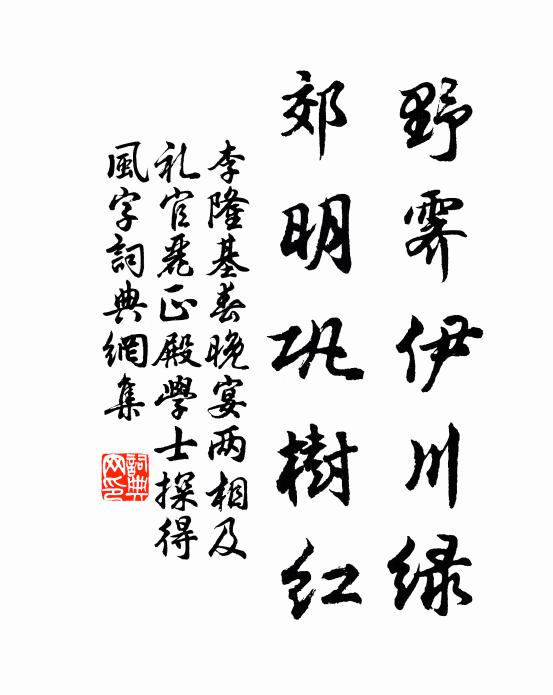 野霁伊川緑
郊明巩樹红
李隆基春晚宴两相及
礼官丽正殿學士探得
風字詞典網集
詞典网印